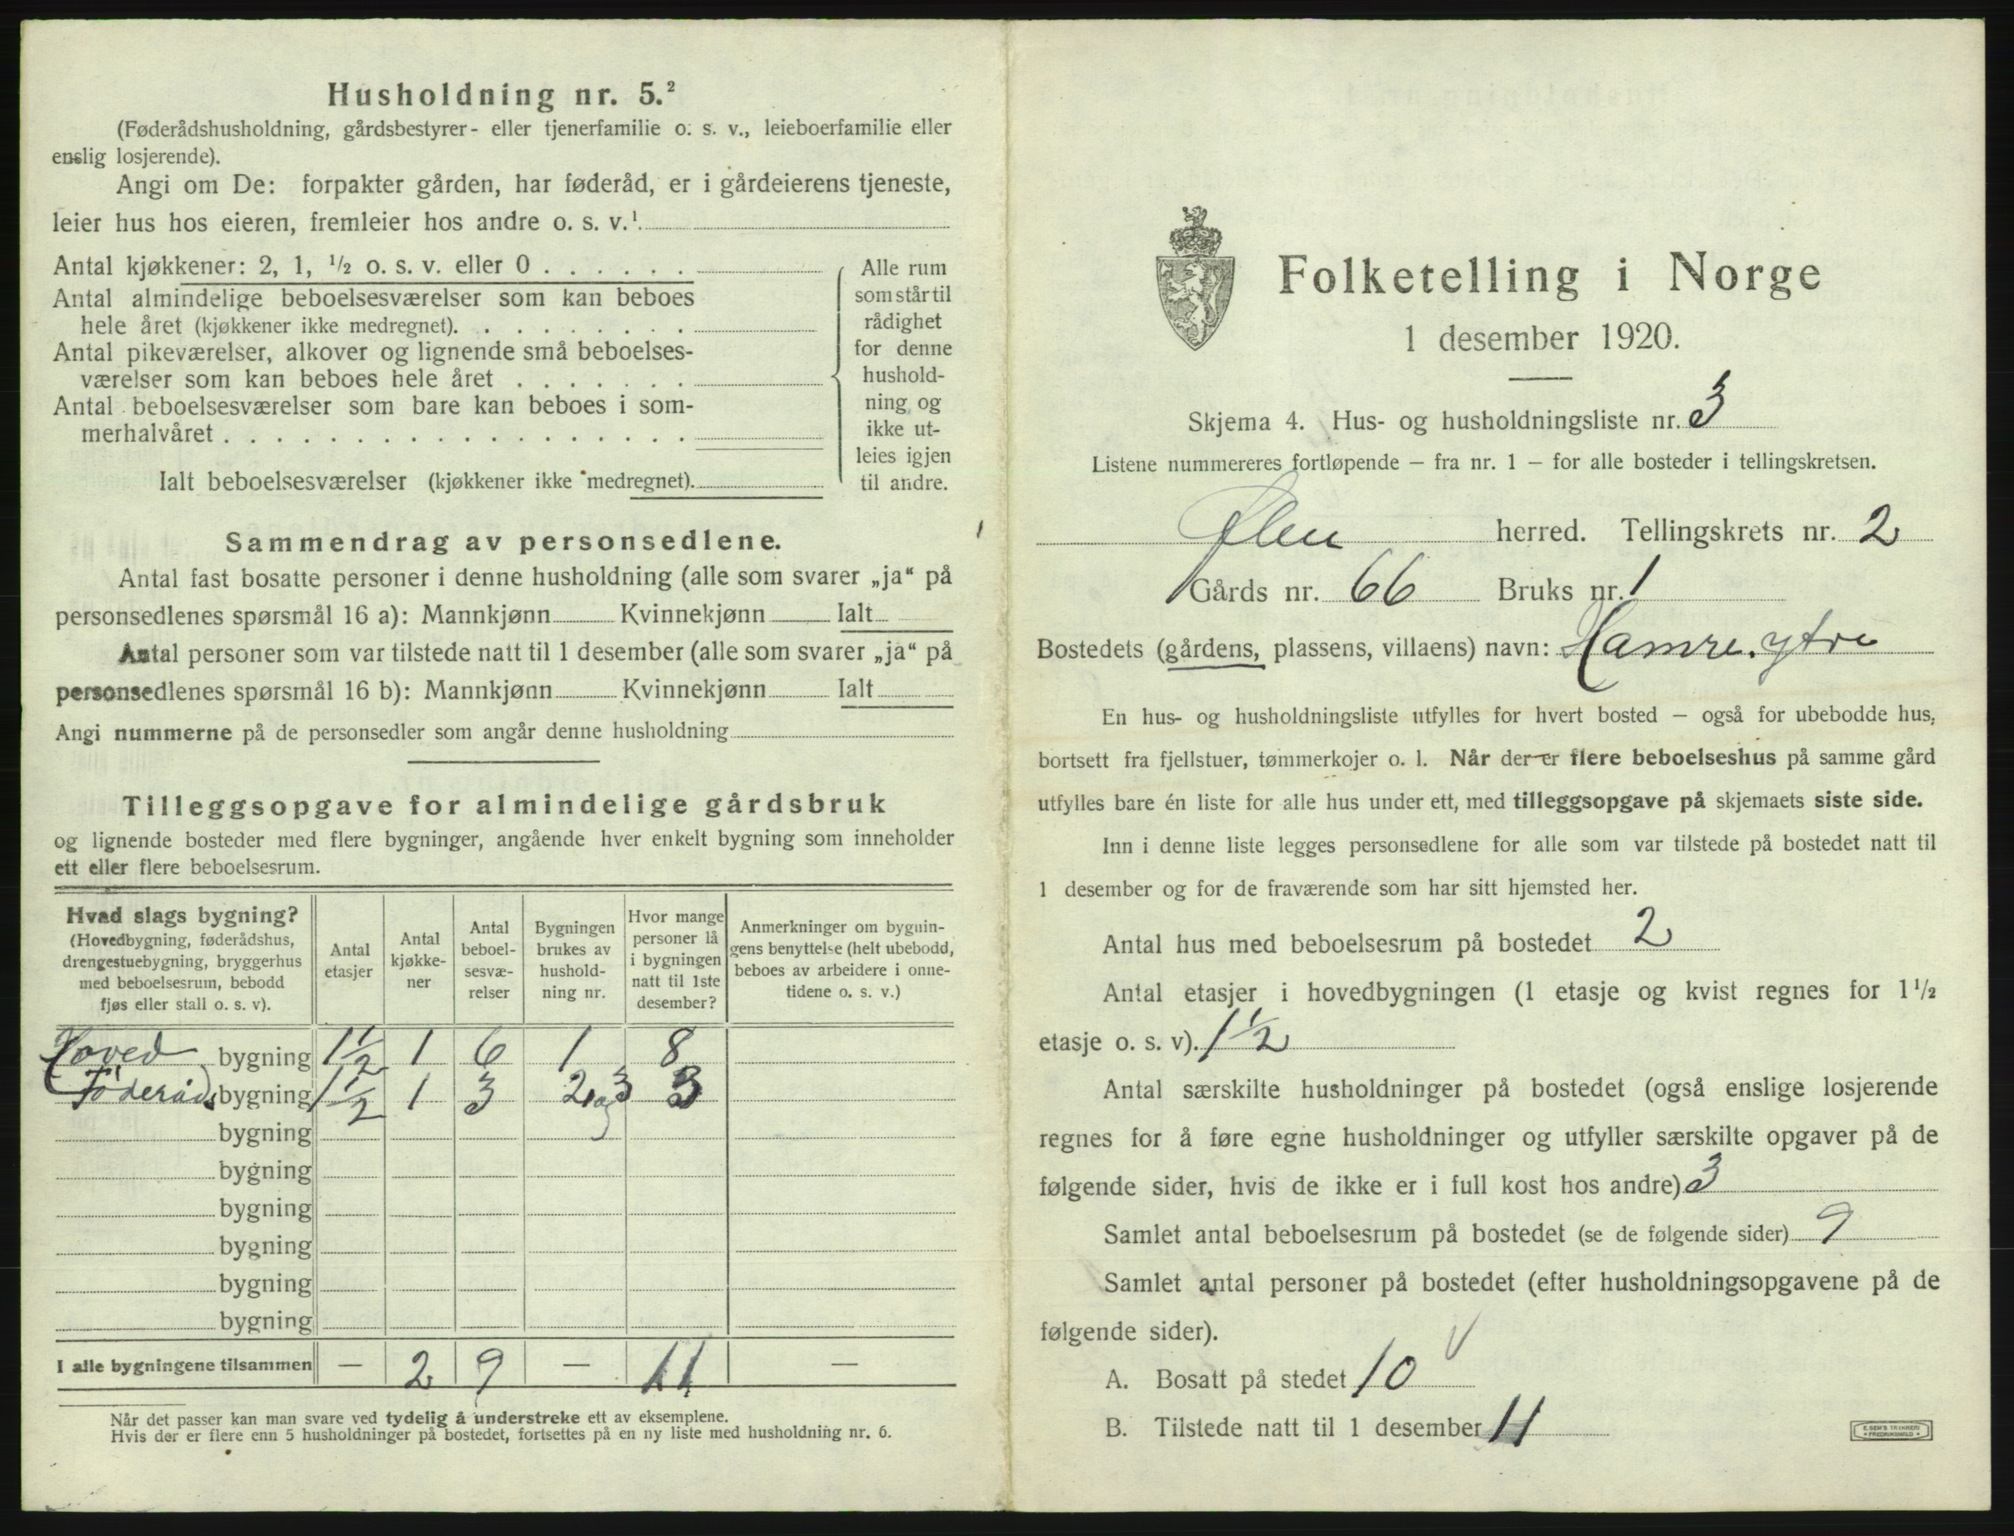 Husholdning nr. 5.²
(Føderådshusholdning, gårdsbestyrer- eller tjenerfamilie o. s. v., leieboerfamilie eller
enslig losjerende).
Angi om De: forpakter gården, har føderåd, er i gårdeierens tjeneste,
leier hus hos eieren, fremleier hos andre o. s. v.¹
Antal kjøkkener: 2, 1, ½ o. s. v. eller 0
Antal almindelige beboelsesværelser som kan beboes
hele året (kjøkkener ikke medregnet).
Antal pikeværelser, alkover og lignende små beboelses-
værelser som kan beboes hele året
Antal beboelsesværelser som bare kan beboes i som-
merhalvåret
Ialt beboelsesværelser (kjøkkener ikke medregnet).
Alle rum
som står til
rådighet
for denne
hushold-
ning og
ikke ut-
leies igjen
til andre.
Sammendrag av personsedlene.
Antal fast bosatte personer i denne husholdning (alle som svarer „ja“ på
personsedlenes spørsmål 16 a): Mannkjønn Kvinnekjønn Ialt
Antal personer som var tilstede natt til 1 desember (alle som svarer „ja“ på
personsedlenes spørsmål 16 b): Mannkjønn Kvinnekjønn Ialt
Angi nummerne på de personsedler som angår denne husholdning
Tilleggsopgave for almindelige gårdsbruk
og lignende bosteder med flere bygninger, angående hver enkelt bygning som inneholder
ett eller flere beboelsesrum.
Hvad slags bygning?
(Hovedbygning, føderådshus,
drengestuebygning, bryggerhus
med beboelsesrum, bebodd
fjøs eller stall o. s. v).
Antal
etasjer
Antal
kjøkke-
ner
Antal
beboel-
sesvæ-
relser
Bygningen
brukes av
hushold-
ning nr.
Hvor mange
personer lå
i bygningen
natt til 1ste
desember?
Anmerkninger om bygnin-
gens benyttelse (helt ubebodd,
beboes av arbeidere i onne-
tidene o. s. v.)
Hoved bygning 1½ 1 6 1 8
Føderåds bygning 1½ 1 3 2 og 3 3
bygning
bygning
bygning
bygning
bygning
bygning
I alle bygningene tilsammen — 2 9 — 11 —
Når det passer kan man svare ved tydelig å understreke ett av eksemplene.
Hvis der er flere enn 5 husholdninger på bostedet, fortsettes på en ny liste med husholdning nr. 6.
Folketelling i Norge
1 desember 1920.
Skjema 4. Hus- og husholdningsliste nr. 3
Listene nummereres fortløpende – fra nr. 1 – for alle bosteder i tellingskretsen.
Ølen herred. Tellingskrets nr. 2
Gårds nr. 66 Bruks nr. 1
Bostedets (gårdens, plassens, villaens) navn: Hamre, ytre
En hus- og husholdningsliste utfylles for hvert bosted – også for ubebodde hus,
bortsett fra fjellstuer, tømmerkojer o. l. Når der er flere beboelseshus på samme gård
utfylles bare én liste for alle hus under ett, med tilleggsopgave på skjemaets siste side.
Inn i denne liste legges personsedlene for alle som var tilstede på bostedet natt til
1 desember og for de fraværende som har sitt hjemsted her.
Antal hus med beboelsesrum på bostedet 2
Antal etasjer i hovedbygningen (1 etasje og kvist regnes for 1½
etasje o. s. v). 1½
Antal særskilte husholdninger på bostedet (også enslige losjerende
regnes for å føre egne husholdninger og utfyller særskilte opgaver på de
følgende sider, hvis de ikke er i full kost hos andre) 3
Samlet antal beboelsesrum på bostedet (se de følgende sider) 9
Samlet antal personer på bostedet (efter husholdningsopgavene på de
følgende sider).
A. Bosatt på stedet 10
B. Tilstede natt til 1 desember 11